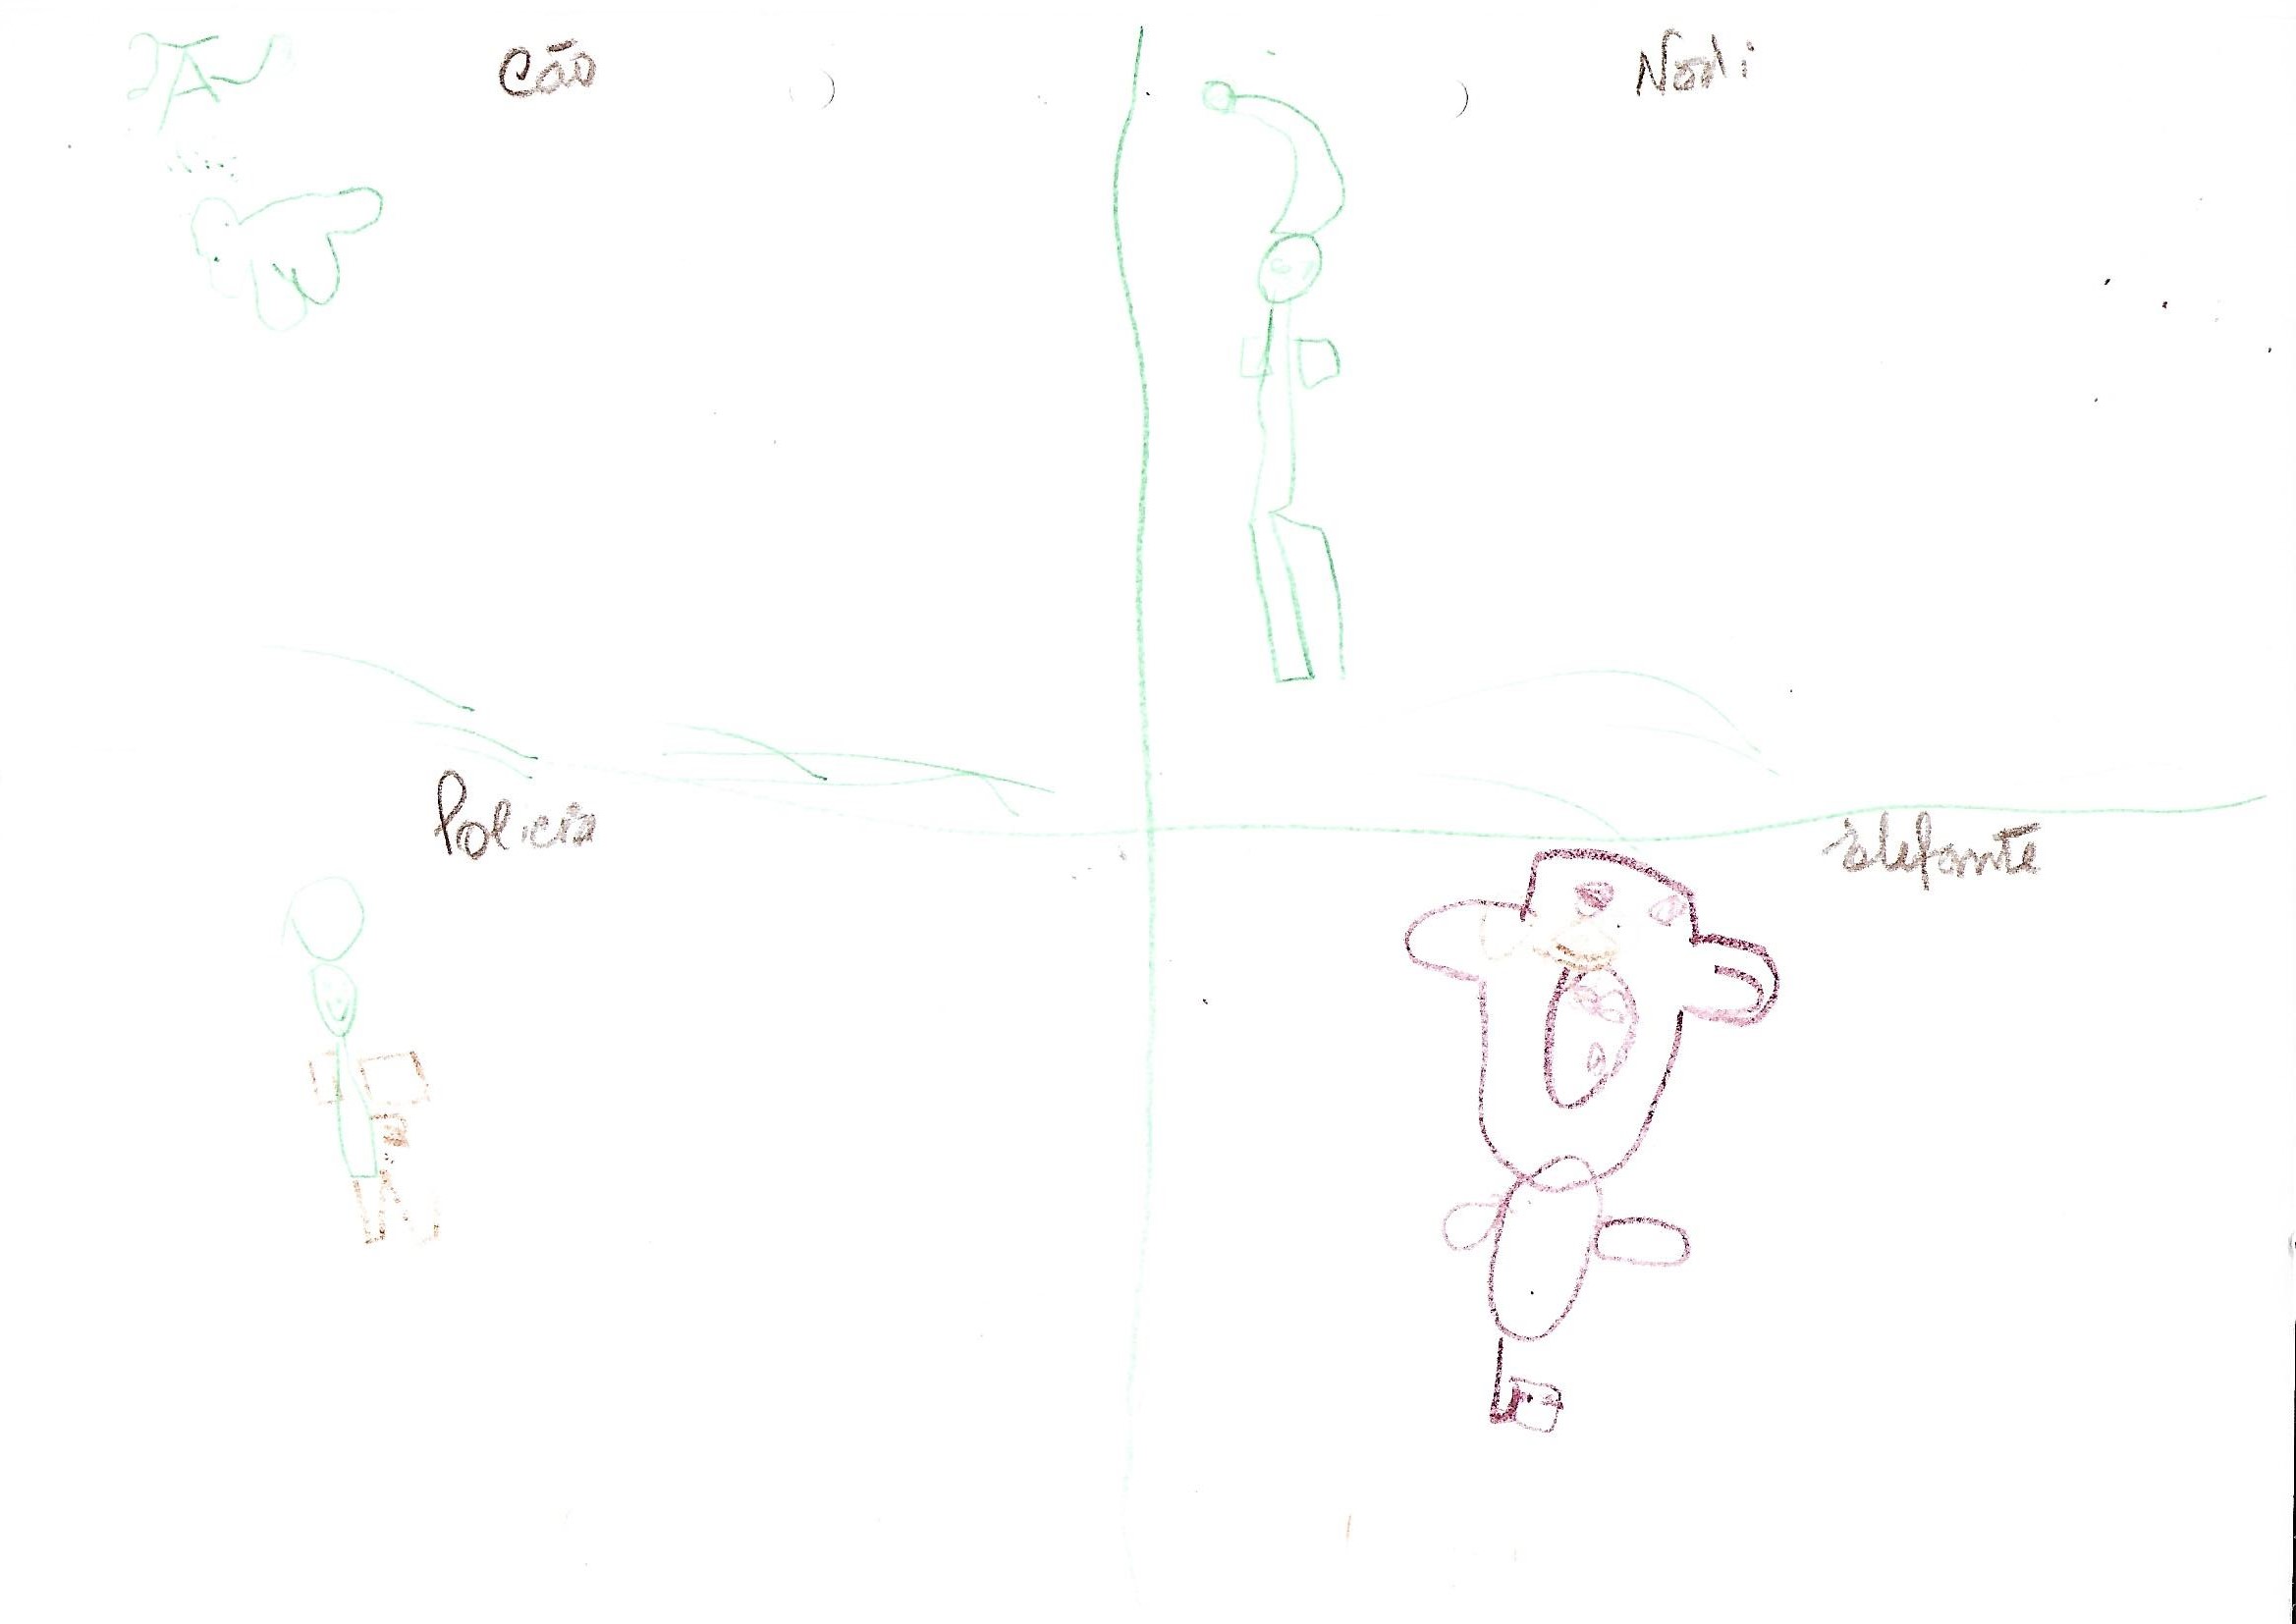 Cão
Nodi
Policia
Elefante